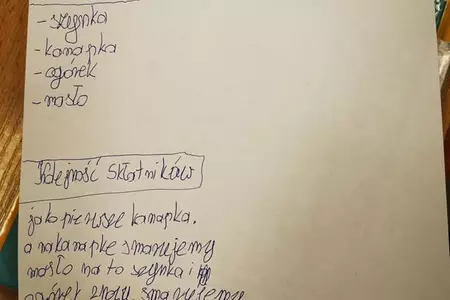 - szynka
- kanapka
- ogórek
- masło
Kolejność Skłatników
jako pierwsze kanapka.
a na kanapkę smarujemy
masło na to szynka i
ogórek znow smarujemy